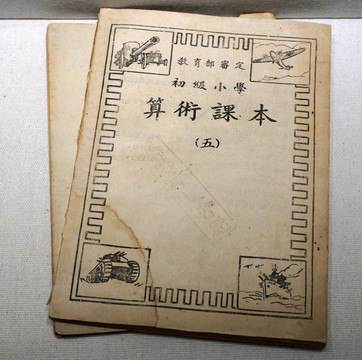 教育部審定
初級小學
算術課本
(五)